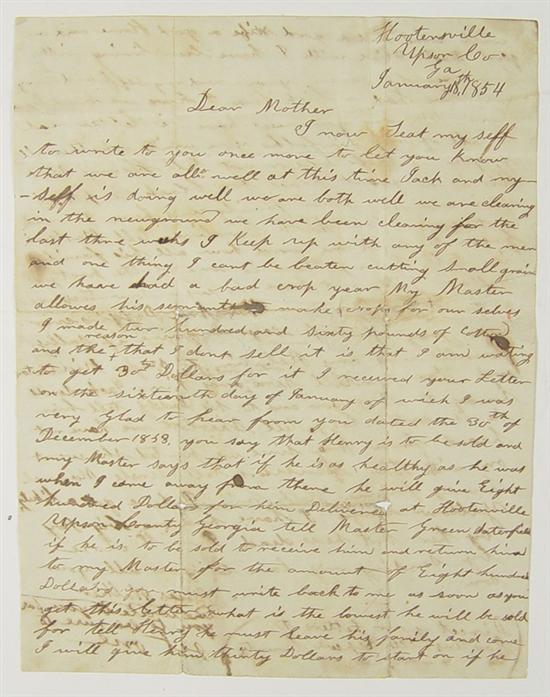 Hootensville
Upson Co
Ga
January 18th, 1854
Dear Mother
I now Seat my seff
to write to you once more to let you Know
that we are all well at this time Jack and my-
-seff is doing well we are both well we are clearing
in the newground we have been clearing for the
last three weeks I Keep up with any of the men
and one thing I cant be beaten cutting Small grain
we have had a bad crop year My Master
allowes his servants to make crops for our selves
I made two hundred and sixty pounds of Cotton
reason
and the that I dont sell it is that I am wating
to get 30 Dollars for it I received your Letter
on the sixteenth day of January of wich I was
very Glad to hear from you dated the 30th of
December 1853, you say that Henry is to be sold and
my Master says that if he is as healthy as he was
when I came away from there he will give Eight
hundred Dollars for him Delivered at Hootenville
Upson County Georgia tell Master Green
if he is to be sold to receive him and return him
to my Master for the amount of Eight hundred
Dollars you must write back to me as soon as you
get this letter what is the lowest he will be sold
for tell Henry he must leave his family and come
I will give him thirty Dollars to start on if he